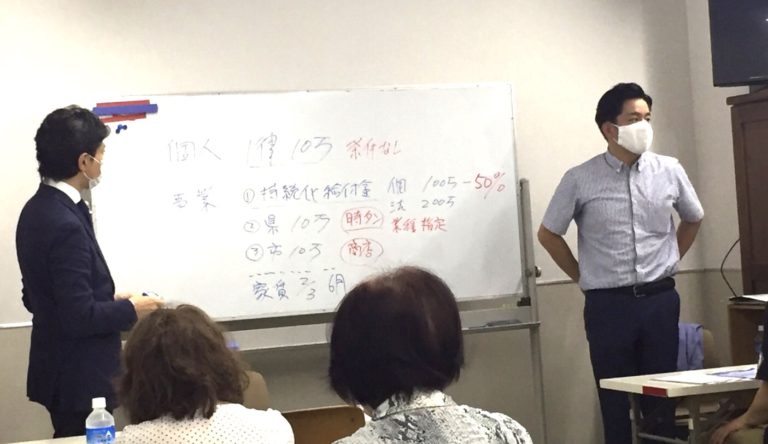 個人 1律 10万 条件なし
事業 ①持続化給付金 個 100万 -50%
法 200万
②県 10万 時タン 業種指定
③市 10万 商店
家賃 2/3 6月